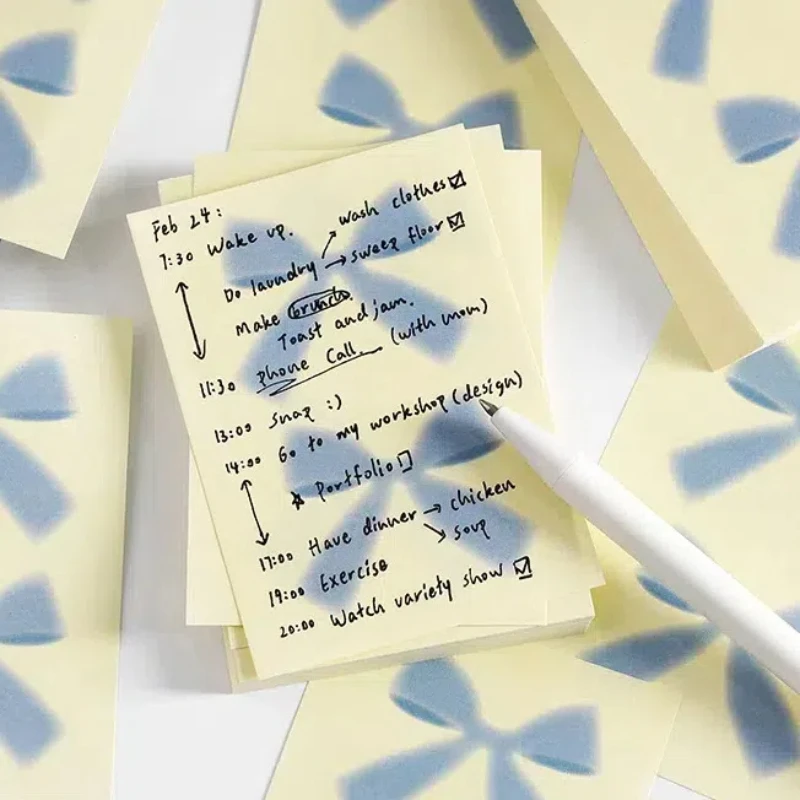 Feb 24:
7:30 Wake up.
Do laundry → wash clothes ☑
→ sweep floor ☑
Make brunch.
Toast and jam.
11:30 phone Call. (with mom)
13:00 snap :)
14:00 Go to my workshop (design)
☆ Portfolio ☐
17:00 Have dinner → chicken
↘ soup
19:00 Exercise
20:00 Watch variety show ☑